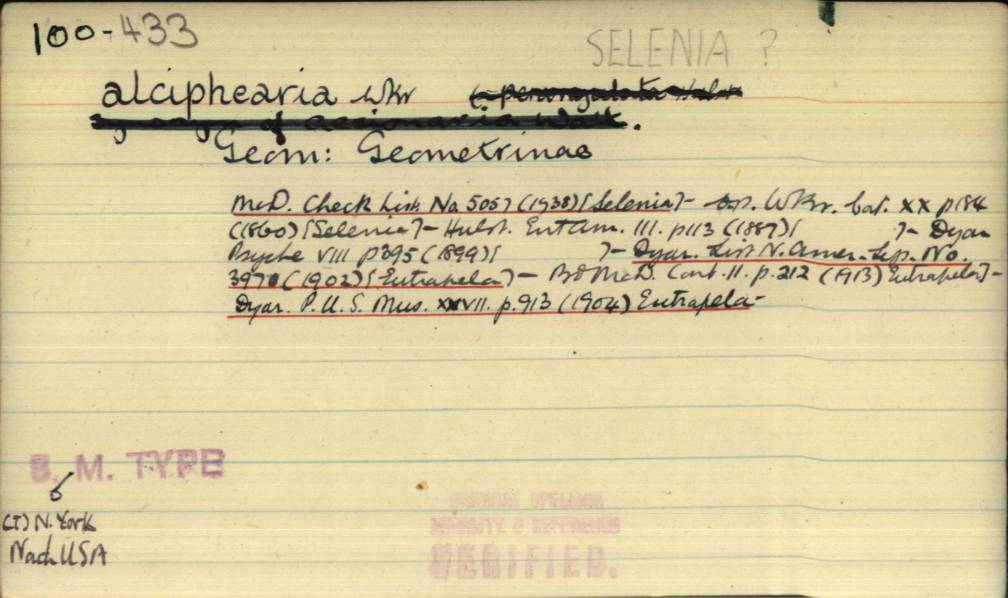 100-433
SELENIA ?
alciphearia Wkr
Geom: Geometrinae
McD. Check List. No 5057 (1938) [Selenia] - Wkr. Cat. XX p184
(1860) [Selenia] - Hulst. Ent Am. III. p113 (1887) [ ] - Dyar
Psyche VIII p395 (1899) [ ] - Dyar. List N. Amer. Lep. No.
3970 (1902) [Eutrapela] - B & McD. Cont. II. p.212 (1913) Eutrapela] -
Dyar. P. U. S. Mus. XXVII. p.913 (1904) Eutrapela -
B. M. TYPE
(T) N. York
USA
VERIFIED.